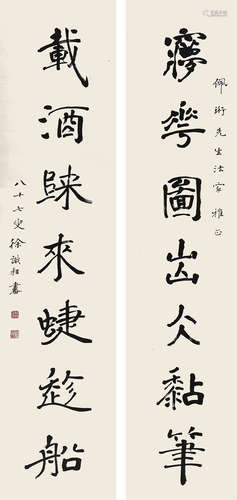 佩珩先生法家雅正
㝱華圖出仌黏筆
載酒歸來蜨趁船
八十七叟徐識耜書